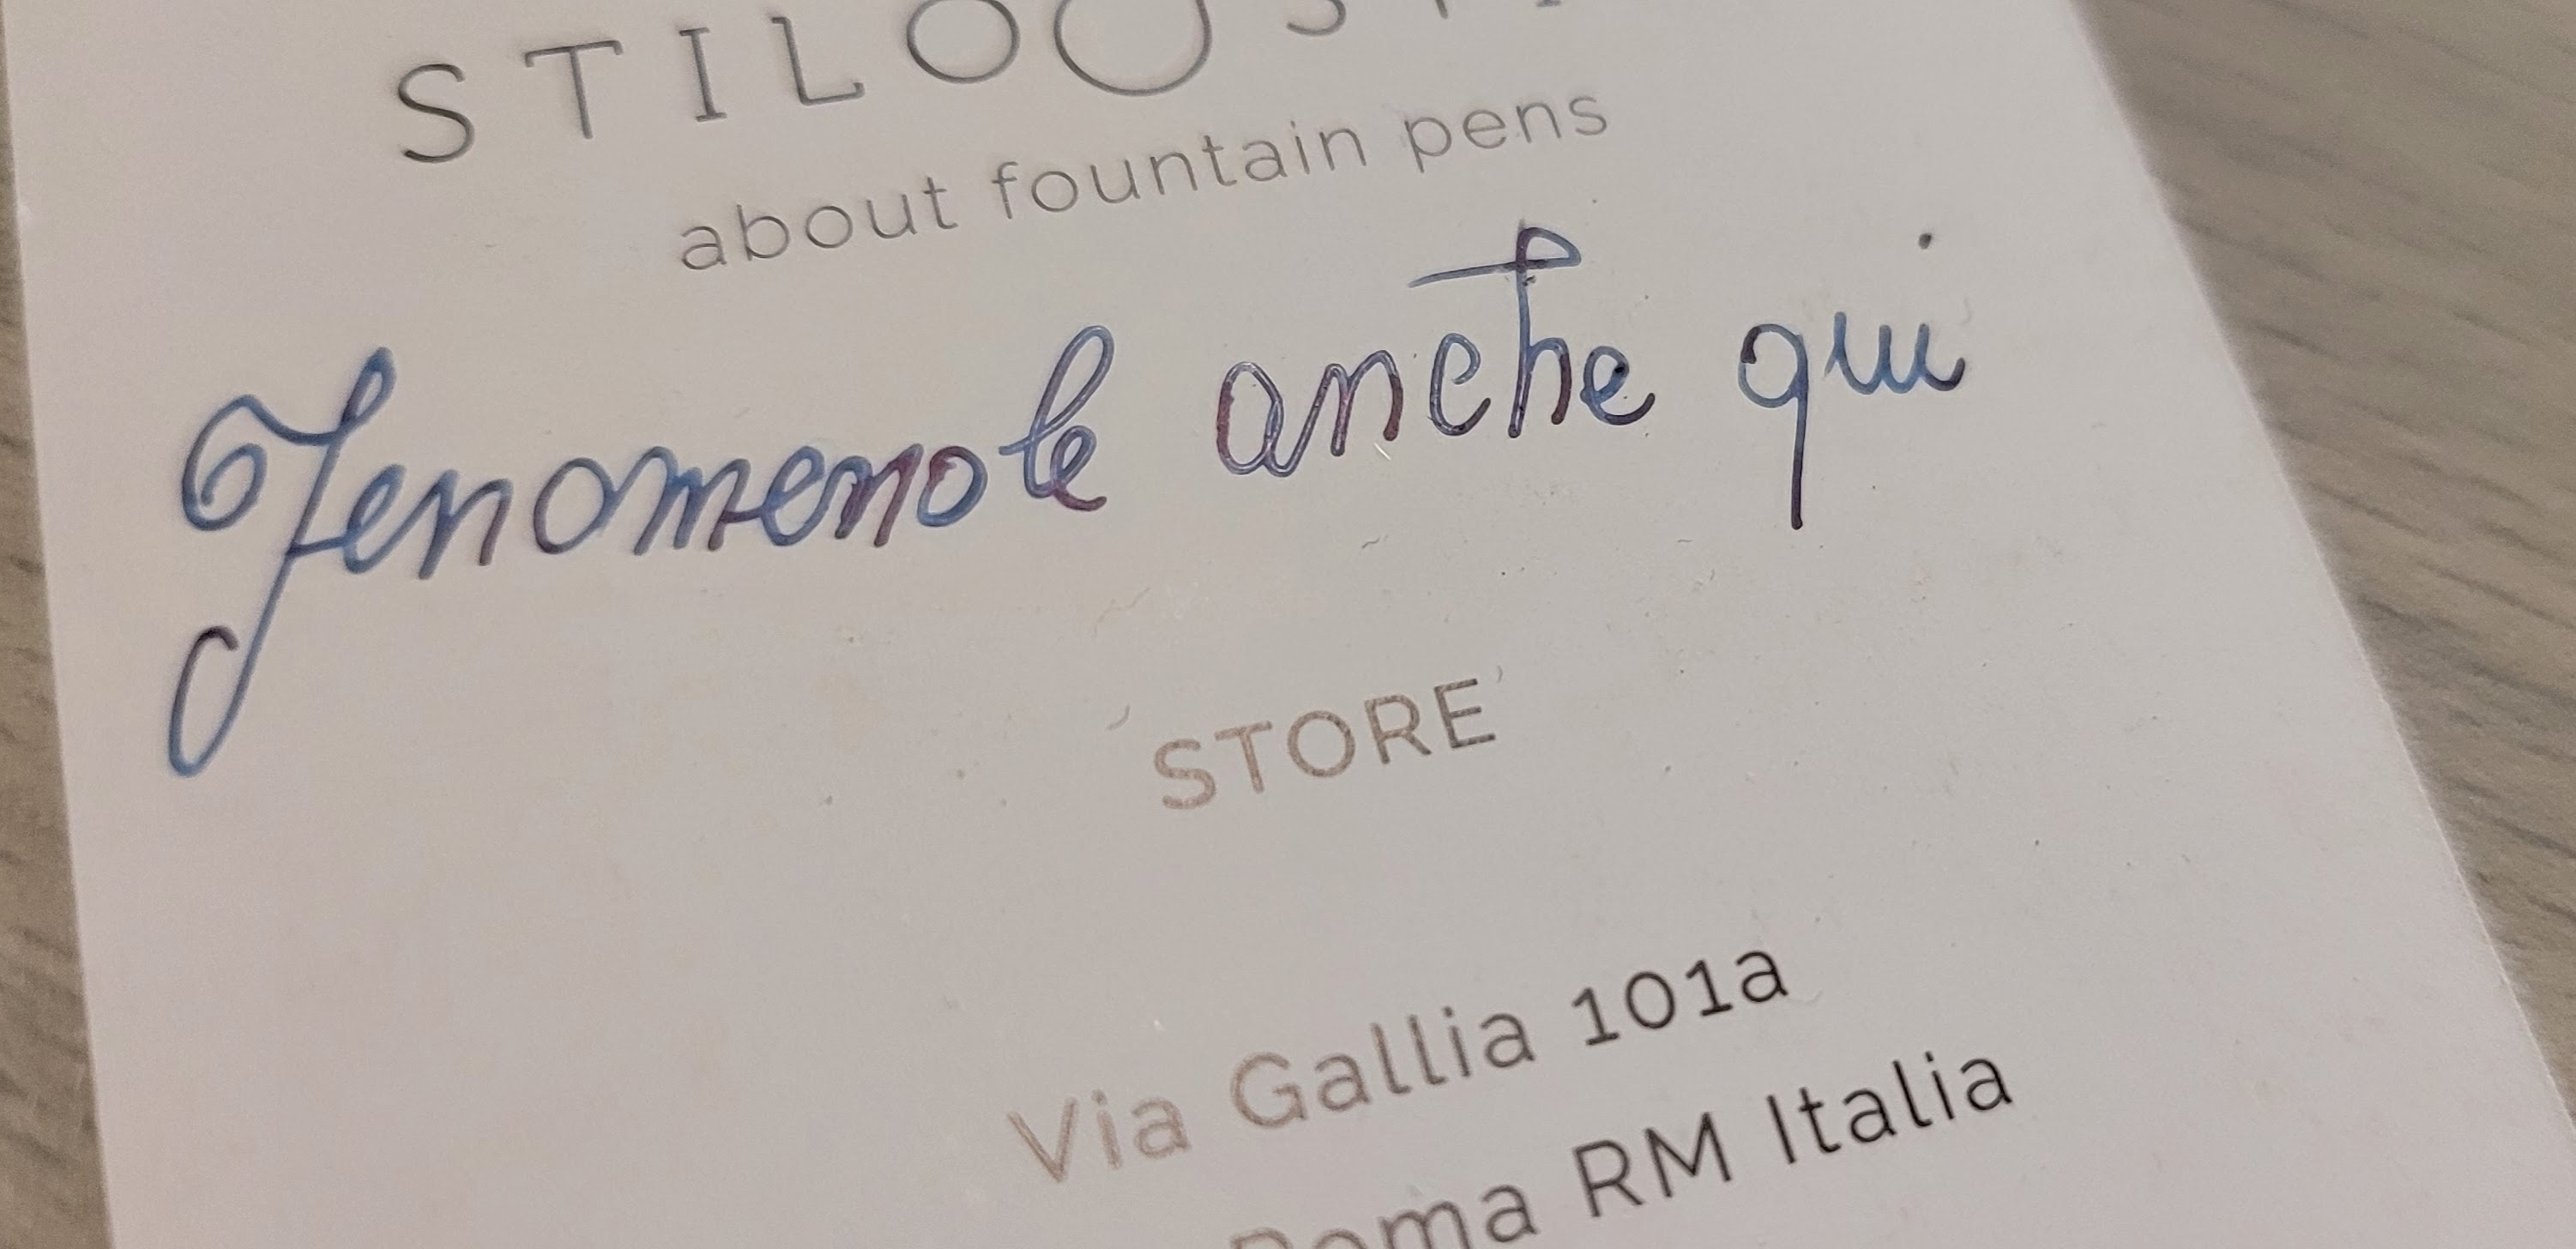 about fountain pens
Fenomenole anche qui
STORE
Via Gallia 101a
Roma RM Italia